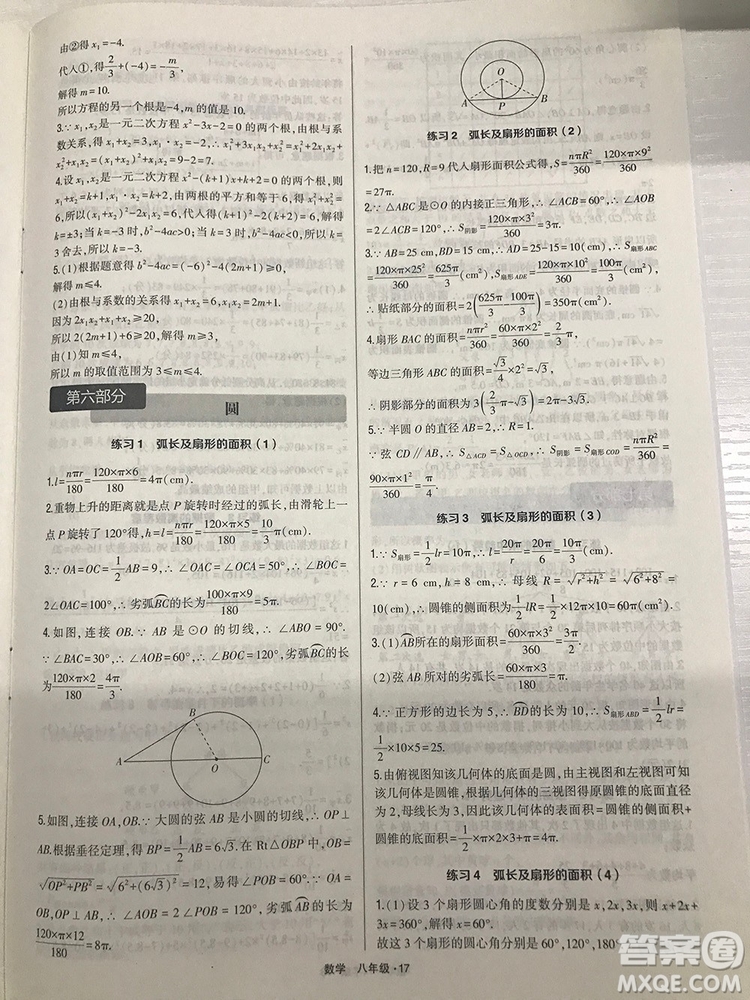 由②得 x₁=-4.
代入①,得 2/3+(-4)=-m/3,
解得 m=10.
所以方程的另一个根是-4,m的值是10.
3.∵ x₁,x₂是一元二次方程 x²-3x-2=0 的两个根,由根与系
数关系,得 x₁+x₂=3,x₁·x₂=-2.
x₁²+x₁x₂+x₂²=(x₁+x₂)²-x₁x₂=9-(-2)
4.设 x₁,x₂是一元二次方程 x²-(k+1)x+k+2=0 的两个根,得
x₁+x₂=k+1,x₁x₂=k+2,由两根的平方和等于6,得 x₁²+x₂²=
(x₁+x₂)²-2x₁x₂=6,代入得(k+1)²-2(k+2)=6,解得
k=±3;当 k=-3 时,b²-4ac>0;当 k=3 时,b²-4ac<0,所以 k=
3 舍去,所以 k=-3.
5.(1)根据题意得 b²-4ac=(-6)²-4(2m+1)≥0,
解得 m≤4.
(2)由根与系数的关系得 x₁+x₂=6,x₁x₂=2m+1.
因为 2x₁x₂+x₁+x₂≥20,
所以 2(2m+1)+6≥20,解得 m≥3,
由(1)知 m≤4,
所以 m 的取值范围为 3≤m≤4.
第六部分
圆
练习1 弧长及扇形的面积(1)
1.l=nπr/180=120×π×6/180=4π(cm).
2.重物上升的距离就是点 P 旋转时经过的弧长,由滑轮上一
点 P 旋转了 120°得,h=l=nπr/180=120×π×5/180=10/3π(cm).
3.∵ OA=OC=1/2AB=9,∴ ∠OAC=∠OCA=50°,∴ ∠BOC=
2∠OAC=100°,∴ 劣弧BC的长为100×π×9/180=5π.
4.如图,连接 OB.∵ AB 是⊙O 的切线,∴ ∠ABO=90°.
∵ ∠BAC=30°,∴ ∠AOB=60°,∴ ∠BOC=120°,劣弧BC的长
为120×π×2/180=4π/3.
B
A
O
C
5.如图,连接 OA,OB.∵ 大圆的弦 AB 是小圆的切线,∴ OP⊥
AB.根据垂径定理,得 BP=1/2AB=6√3.在 Rt△OBP 中,OB=
√(OP²+PB²)=√(6²+(6√3)²)=12,易得∠BOP=60°.∵ OA=
OB,OP⊥AB,∴ ∠AOB=2∠BOP=120°,劣弧AB的长为
120×π×12/180=8π.
O
A
P
B
练习2 弧长及扇形的面积(2)
1.把 n=120,R=9 代入扇形面积公式得,S=nπR²/360=120×π×9²/360
=27π.
2.∵ △ABC 是⊙O 的内接正三角形,∴ ∠ACB=60°,∴ ∠AOB
=2∠ACB=120°,∴ S阴影=120×π×3²/360=3π.
3.∵ AB=25 cm,BD=15 cm,∴ AD=25-15=10(cm),∴ S扇形ABC
=120×π×25²/360=625π/3(cm²),S扇形ADE=120×π×10²/360=100π/3(cm²),
∴ 贴纸部分的面积=2(625π/3-100π/3)=350π(cm²).
4.扇形 BAC 的面积=nπr²/360=60×π×2²/360=2/3π,
等边三角形 ABC 的面积=√3/4×2²=√3,
∴ 阴影部分的面积=3(2/3π-√3)+√3=2π-2√3.
5.∵ 半圆 O 的直径 AB=2,∴ OA=1.
∵ 弦 CD∥AB,∴ S△ACD=S△OCD,∴ S阴影=S扇形COD=nπR²/360=
90×π×1²/360=π/4.
练习3 弧长及扇形的面积(3)
1.∵ S扇形=1/2lr=10π,∴ l=20π/r=20π/10=2π(cm).
2.∵ r=6 cm,h=8 cm,∴ 母线 R=√(r²+h²)=√(6²+8²)=
10(cm),∴ 圆锥的侧面积为1/2lR=1/2×12π×10=60π(cm²).
3.(1)AB所在的扇形的面积=60×π×3²/360=3π/2.
(2)弦 AB 所对的劣弧长=60×π×3/180=π.
4.∵ 正方形的边长为 5,∴ BD的长度=10,∴ S扇形ABD=1/2lr=
1/2×10×5=25.
5.由俯视图知该几何体的底面是圆,由主视图与左视图可知
该几何体为圆锥,根据三视图知该圆锥的底面圆的直径
为 2,母线长为 3,因此该几何体的表面积=圆锥的侧面积+
圆锥的底面积=1/2×2π×3+π=4π.
练习4 弧长及扇形的面积(4)
1.(1)设 3 个扇形圆心角的度数分别是 x,2x,3x,则 x+2x+
3x=360°,解得 x=60°.
故这 3 个扇形的圆心角分别是 60°,120°,180°
数学 八年级·17
答案圈
MXQE.COM